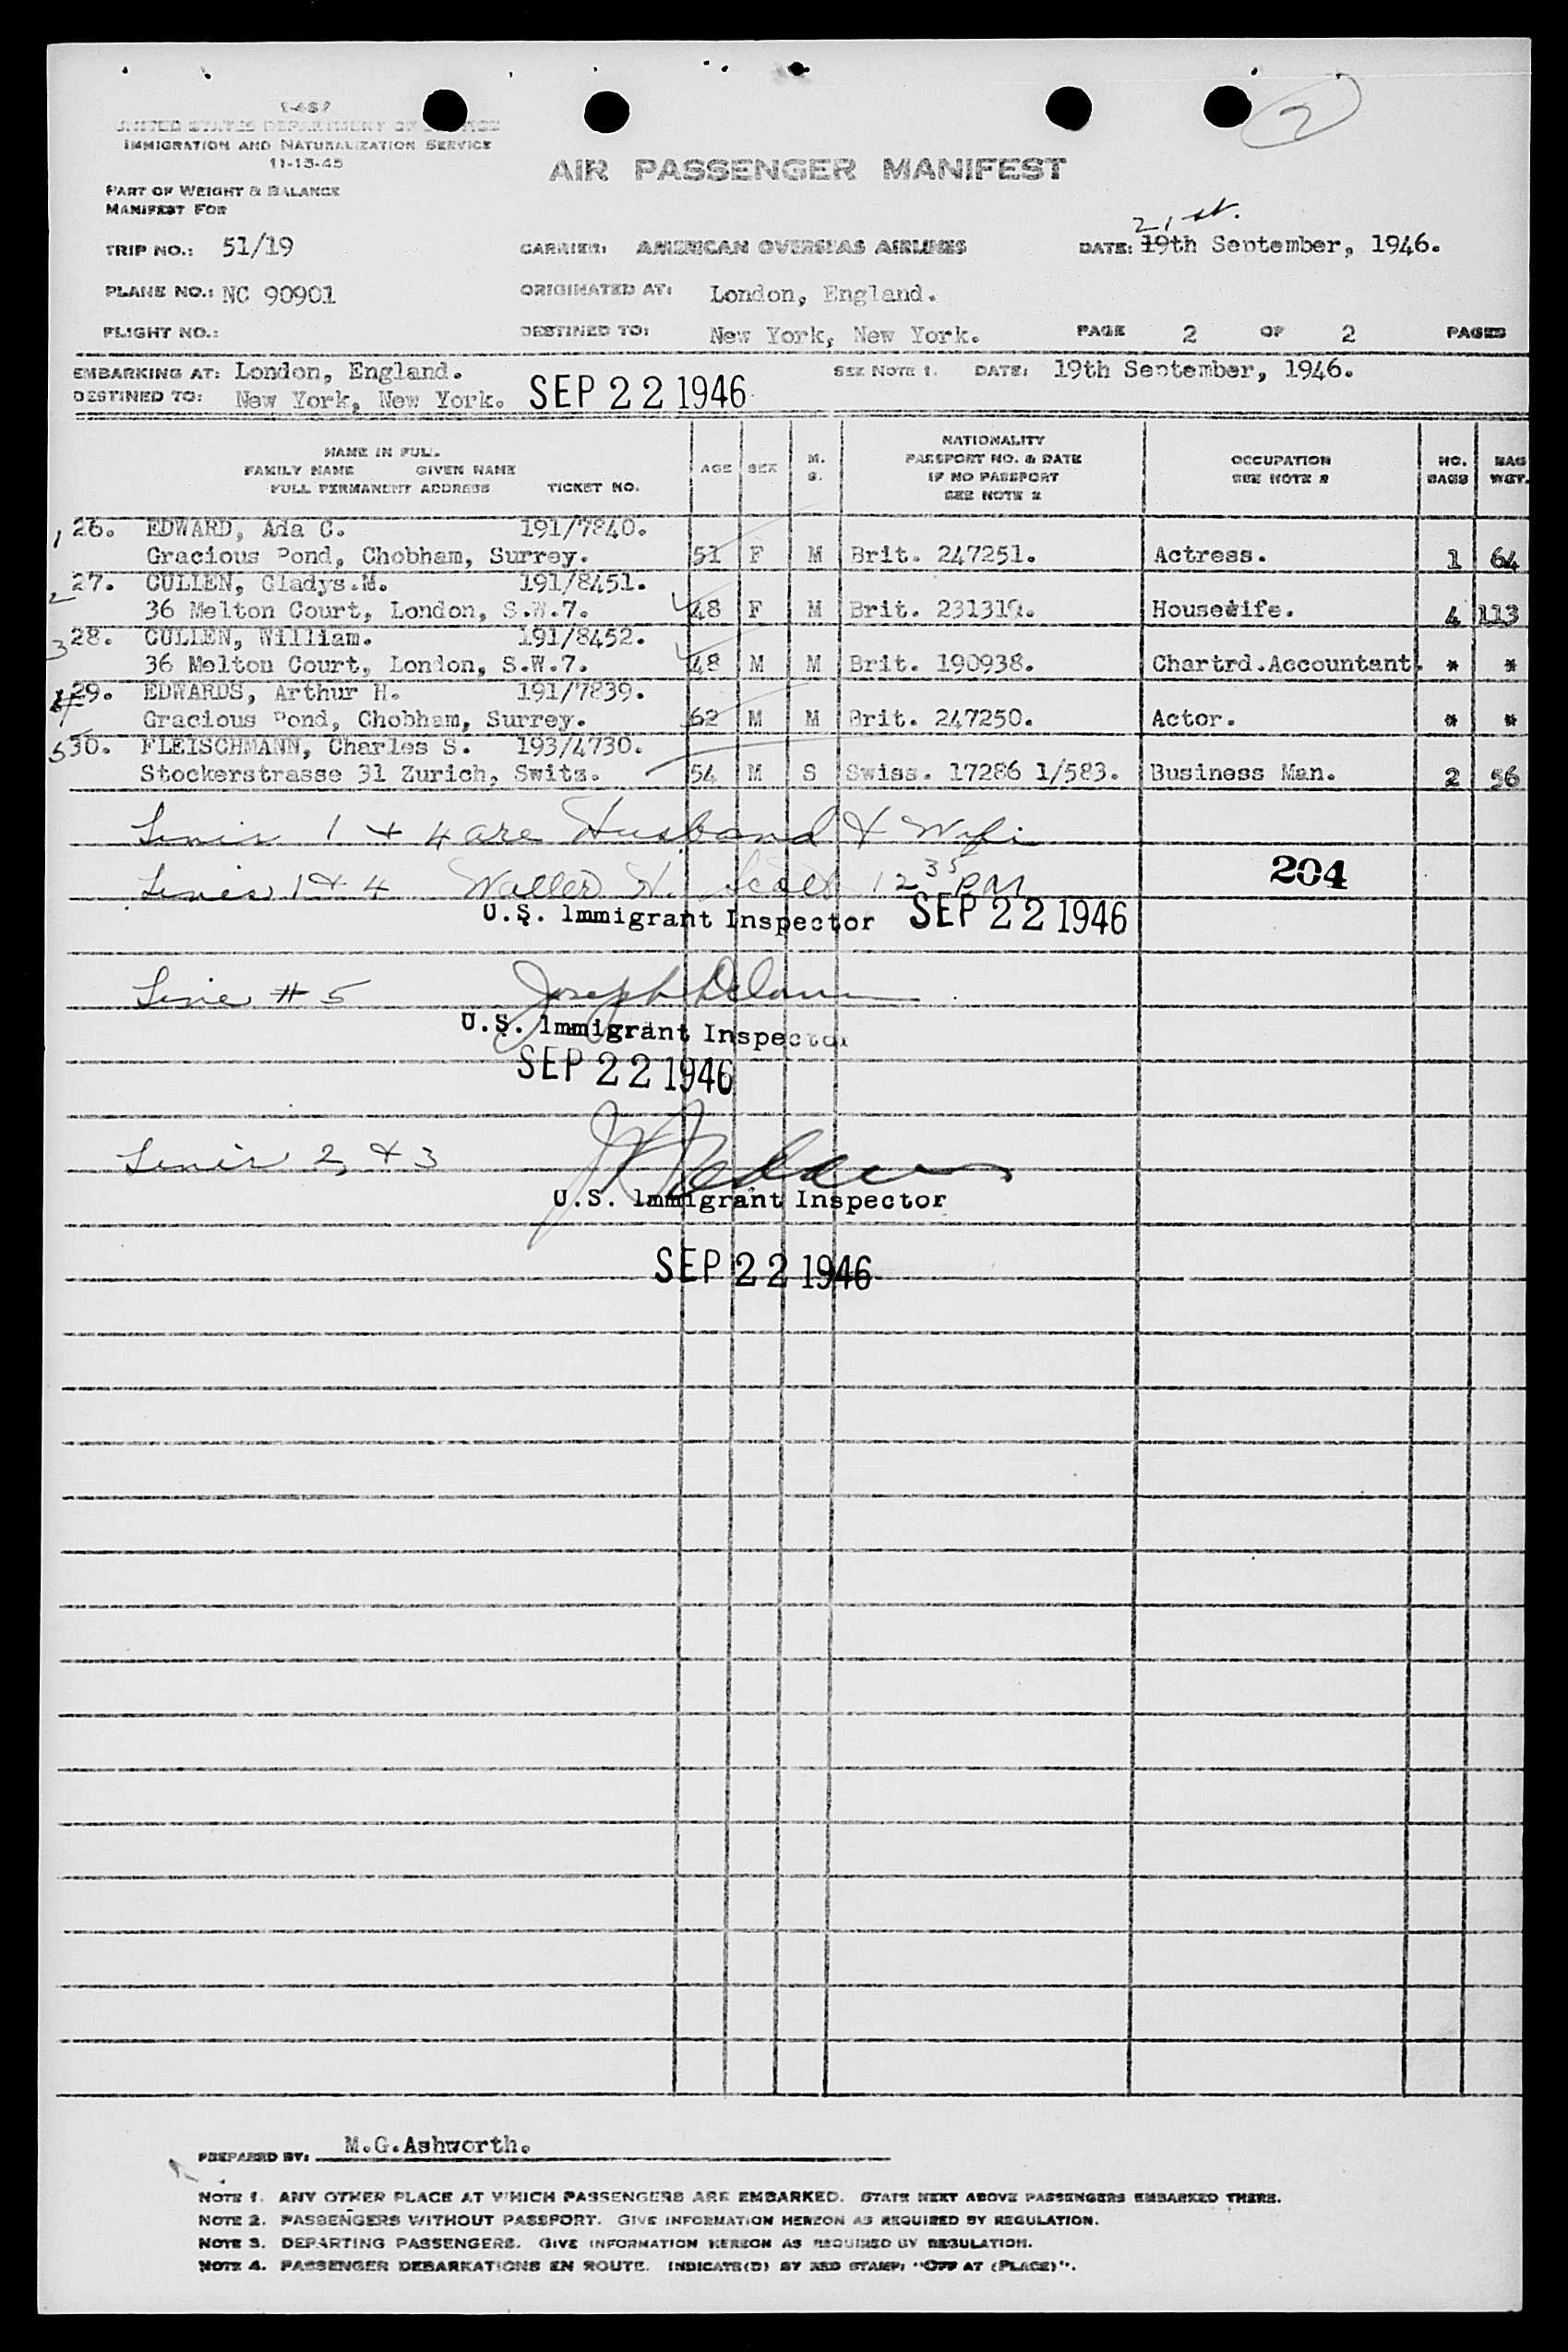 2
I-467
UNITED STATES DEPARTMENT OF JUSTICE
IMMIGRATION AND NATURALIZATION SERVICE
11-15-45
AIR PASSENGER MANIFEST
PART OF WEIGHT & BALANCE
MANIFEST FOR
21st.
TRIP NO.: 51/19 CARRIER: AMERICAN OVERSEAS AIRLINES DATE: 19th September, 1946.
PLANE NO.: NC 90901 ORIGINATED AT: London, England.
FLIGHT NO.: DESTINED TO: New York, New York. PAGE 2 OF 2 PAGES
EMBARKING AT: London, England. SEE NOTE 1. DATE: 19th September, 1946.
DESTINED TO: New York, New York. SEP 22 1946
NAME IN FULL FAMILY NAME GIVEN NAME FULL PERMANENT ADDRESS TICKET NO. AGE SEX M. S. NATIONALITY PASSPORT NO. & DATE IF NO PASSPORT SEE NOTE 2 OCCUPATION SEE NOTE 2 NO. BAGS BAG WGT.
1 26. EDWARD, Ada C. 191/7840.
Gracious Pond, Chobham, Surrey. 51 F M Brit. 247251. Actress. 1 64
2 27. CULLEN, Gladys.M. 191/8451.
36 Melton Court, London, S.W.7. 48 F M Brit. 231319. Housewife. 4 113
3 28. CULLEN, William. 191/8452.
36 Melton Court, London, S.W.7. 48 M M Brit. 190938. Chartrd.Accountant. * *
4 29. EDWARDS, Arthur H. 191/7839.
Gracious Pond, Chobham, Surrey. 62 M M Brit. 247250. Actor. * *
5 30. FLEISCHMANN, Charles S. 193/4730.
Stockerstrasse 31 Zurich, Switz. 54 M S Swiss. 17286 1/583. Business Man. 2 56
Lines 1 & 4 are Husband & Wife
204
Lines 1 & 4 Walter H. Scott 12 35 PM
U.S. Immigrant Inspector SEP 22 1946
Line # 5 Joseph
U.S. Immigrant Inspector
SEP 22 1946
Lines 2, & 3
U.S. Immigrant Inspector
SEP 22 1946
PREPARED BY: M.G.Ashworth.
NOTE 1. ANY OTHER PLACE AT WHICH PASSENGERS ARE EMBARKED. STATE NEXT ABOVE PASSENGERS EMBARKED THERE.
NOTE 2. PASSENGERS WITHOUT PASSPORT. GIVE INFORMATION HEREON AS REQUIRED BY REGULATION.
NOTE 3. DEPARTING PASSENGERS. GIVE INFORMATION HEREON AS REQUIRED BY REGULATION.
NOTE 4. PASSENGER DEBARKATIONS EN ROUTE. INDICATE(D) BY RED STAMP: "OFF AT (PLACE)".